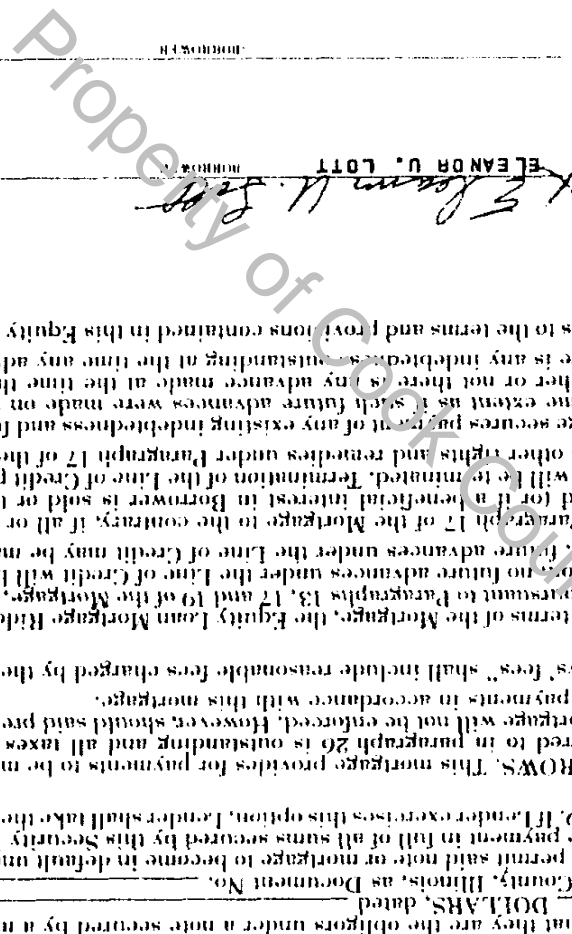 hat they are the obligors under a note secured by a m
DOLLARS, dated
County, Illinois, as Document No.
permit said note or mortgage to become in default un
payment in full of all sums secured by this Security
. If Lender exercises this option, Lender shall take the
ROWS. This mortgage provides for payments to be m
red to in paragraph 26 is outstanding and all taxes
rtgage will not be enforced. However, should said pre
payments in accordance with this mortgage.
ys' fees" shall include reasonable fees charged by the
terms of the Mortgage, the Equity Loan Mortgage Ride
pursuant to Paragraphs 13, 17 and 19 of the Mortgage,
no future advances under the Line of Credit will
future advances under the Line of Credit may be ma
Paragraph 17 of the Mortgage to the contrary, if all or
d (or if a beneficial interest in Borrower is sold or t
will be terminated. Termination of the Line of Credit p
other rights and remedies under Paragraph 17 of the
ge secures payment of any existing indebtedness and f
me extent as if such future advances were made on
her or not there is any advance made at the time th
e is any indebtedness outstanding at the time any ad
s to the terms and provisions contained in this Equity
x Eleanor U. Lott
ELEANOR U. LOTT BORROWER
BORROWER
Property of Cook Coun